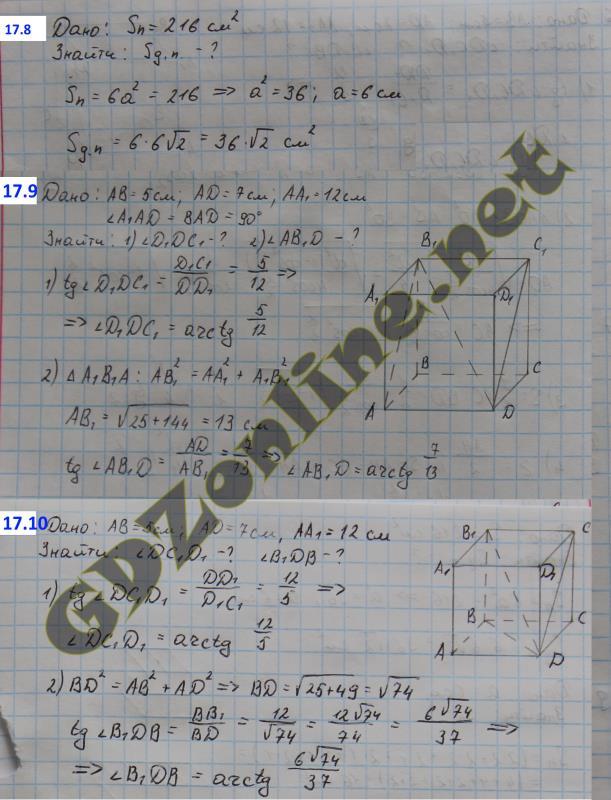 17.8 Дано: Sп = 216 см²
Знайти: Sд.п. - ?
Sп = 6a² = 216 => a² = 36; a = 6 см
Sд.п = 6·6√2 = 36·√2 см²
17.9 Дано: AB = 5см; AD = 7см; AA₁ = 12см
∠A₁AD = BAD = 90°
Знайти: 1) ∠D₁DC₁ - ? 2) ∠AB₁D - ?
1) tg ∠D₁DC₁ = D₁C₁/DD₁ = 5/12 =>
=> ∠D₁DC₁ = arctg 5/12
2) △A₁B₁A: AB₁² = AA₁² + A₁B₁²
AB₁ = √25+144 = 13 см
tg ∠AB₁D = AD/AB₁ = 7/13 => ∠AB₁D = arctg 7/13
B₁
C₁
A₁
D₁
B
C
A
D
17.10 Дано: AB = 5см, AD = 7см, AA₁ = 12 см
Знайти: ∠DC₁D₁ - ? ∠B₁DB - ?
1) tg ∠DC₁D₁ = DD₁/D₁C₁ = 12/5 =>
∠DC₁D₁ = arctg 12/5
2) BD² = AB² + AD² => BD = √25+49 = √74
tg ∠B₁DB = BB₁/BD = 12/√74 = 12√74/74 = 6√74/37 =>
=> ∠B₁DB = arctg 6√74/37
B₁
C
A₁
D₁
B
C
A
D
GDZonline.net